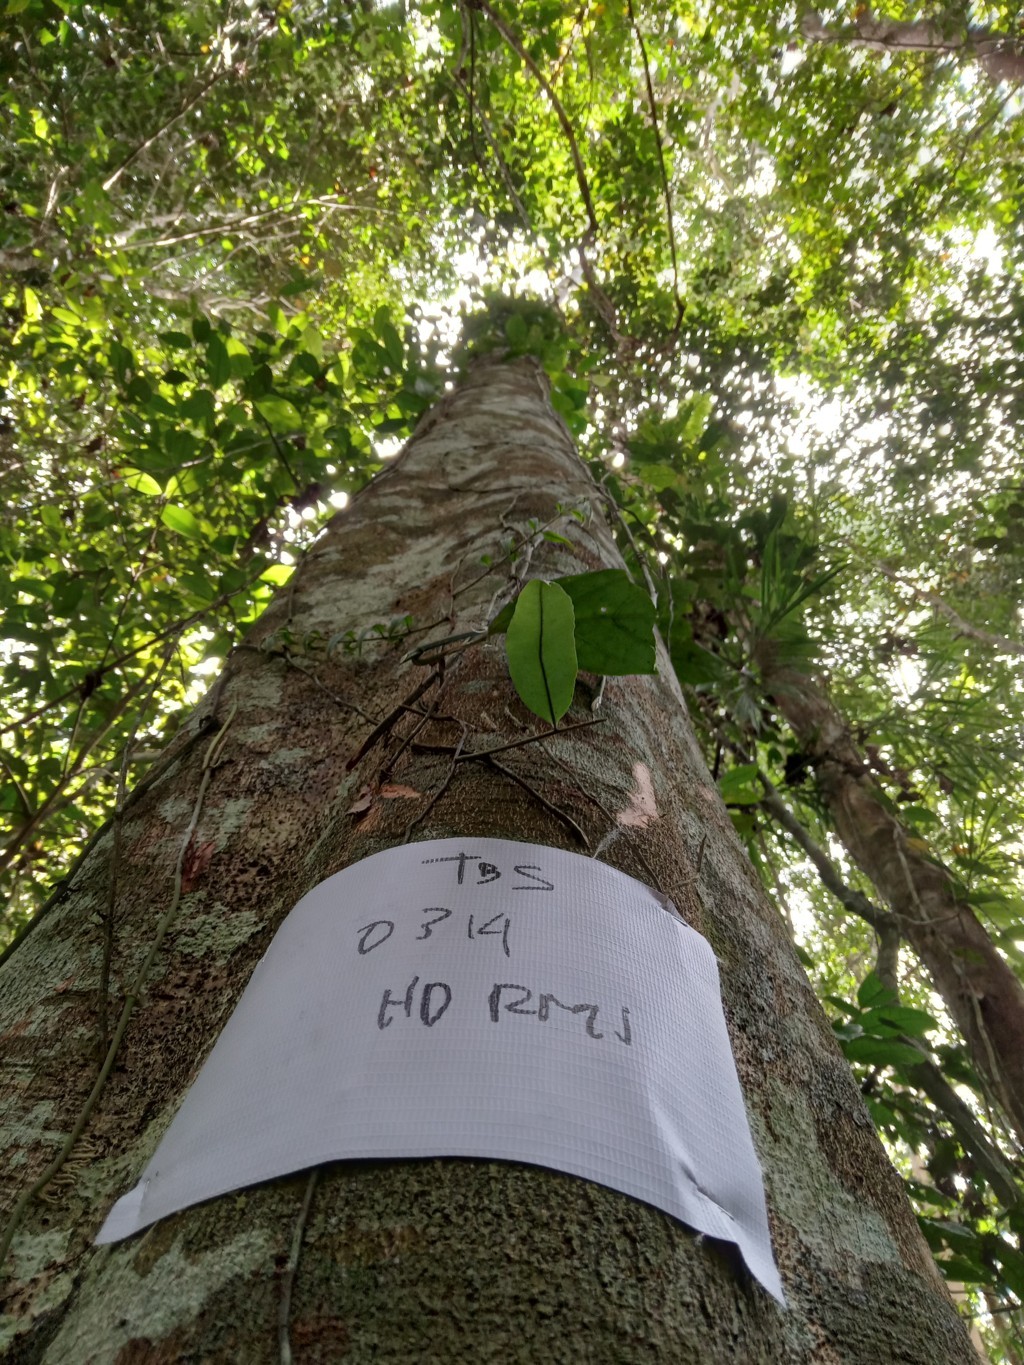 TBS
0314
HD RMS